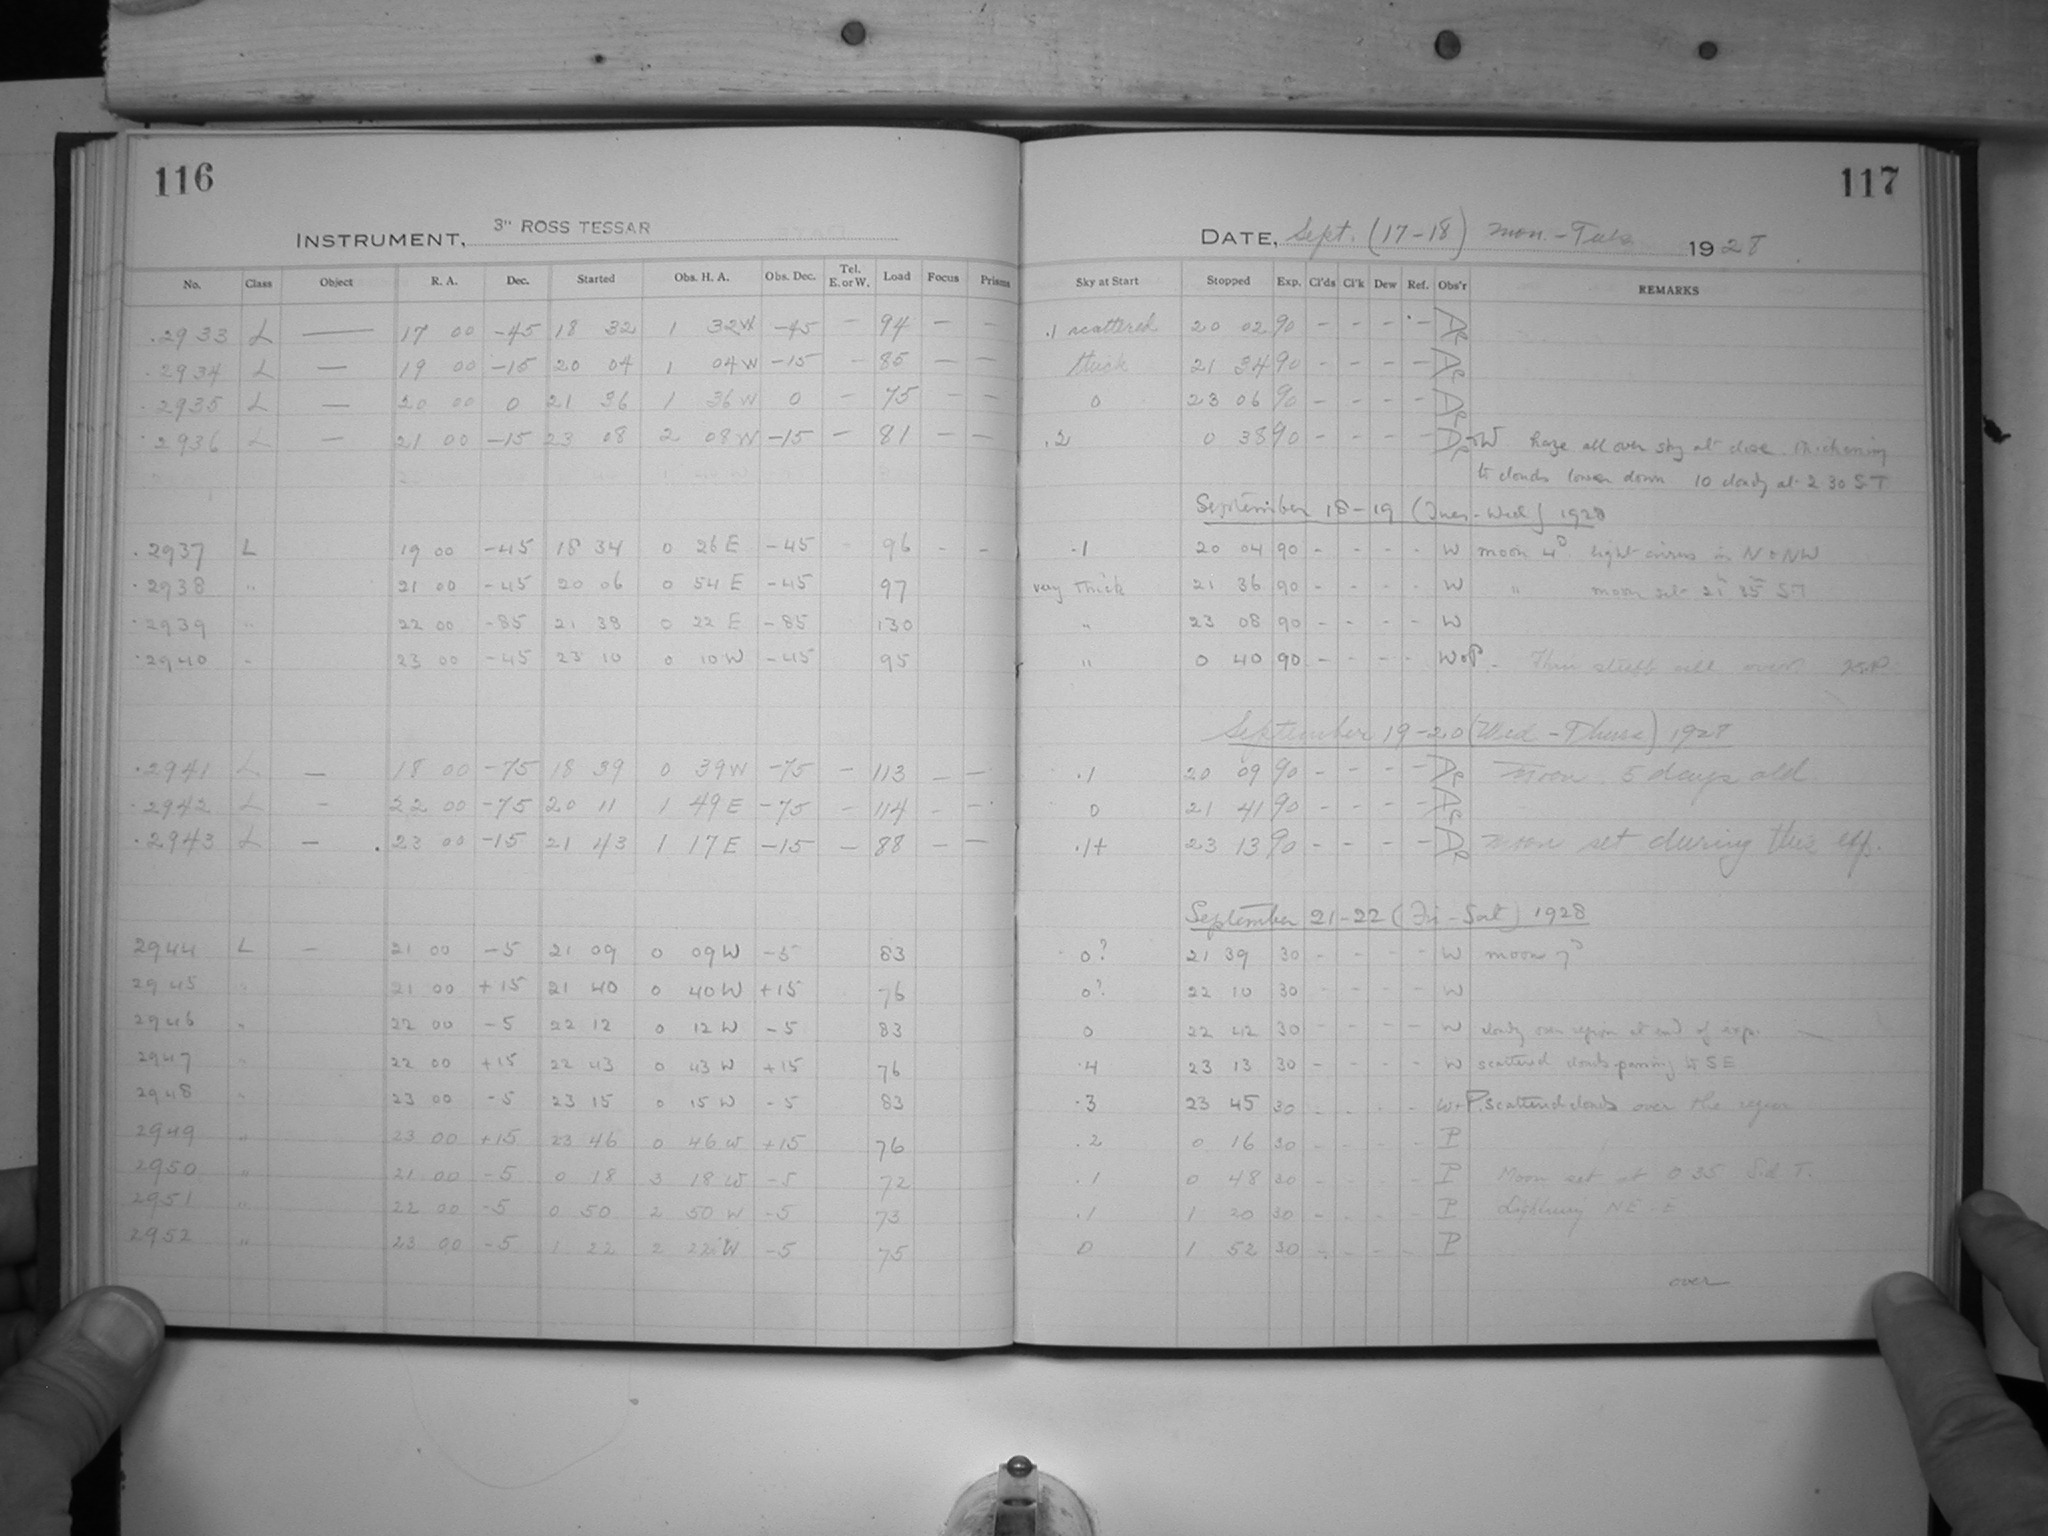 116
INSTRUMENT, 3" ROSS TESSAR
No. Class Object R. A. Dec. Started Obs. H. A. Obs. Dec. Tel. E. or W. Load Focus Prisms
.2933 L — 17 00 -45 18 32 1 32W -45 — 94 — —
.2934 L — 19 00 -15 20 04 1 04W -15 — 85 — —
.2935 L — 20 00 0 21 36 1 36W 0 — 75 — —
.2936 L — 21 00 -15 23 08 2 08W -15 — 81 — —
.2937 L 19 00 -45 18 34 0 26E -45 - 96 - -
.2938 " 21 00 -45 20 06 0 54E -45 97
.2939 " 22 00 -85 21 38 0 22E -85 130
.2940 - 23 00 -45 23 10 0 10W -45 95
.2941 L — 18 00 -75 18 39 0 39W -75 — 113 — —
.2942 L — 22 00 -75 20 11 1 49E -75 — 114 - -
.2943 L — 23 00 -15 21 43 1 17E -15 — 88 — —
2944 L — 21 00 -5 21 09 0 09W -5 83
2945 " 21 00 +15 21 40 0 40W +15 76
2946 " 22 00 -5 22 12 0 12W -5 83
2947 " 22 00 +15 22 43 0 43W +15 76
2948 " 23 00 -5 23 15 0 15W -5 83
2949 " 23 00 +15 23 46 0 46W +15 76
2950 " 21 00 -5 0 18 3 18W -5 72
2951 " 22 00 -5 0 50 2 50W -5 73
2952 " 23 00 -5 1 22 2 22W -5 75
117
DATE, Sept. (17-18) Mon.-Tues 1928
Sky at Start Stopped Exp. Cl'ds Cl'k Dew Ref. Obs'r REMARKS
.1 scattered 20 02 90 - - - -
thick 21 34 90 - - - -
0 23 06 90 - - - -
.2 0 38 90 - - - - +W haze all over sky at close. thickening
to clouds lower down 10 cloudy at 2 30 ST
September 18-19 (Tues-Wed) 1928
.1 20 04 90 - - - - W moon 4D. light cirrus in N & NW
very thick 21 36 90 - - - - W " moon set 21 35 ST
" 23 08 90 - - - - W
" 0 40 90 - - - - W&P. Thin stuff all over
September 19-20 (Wed-Thurs) 1928
.1 20 09 90 - - - - Moon 5 days old
0 21 41 90 - - - -
.1+ 23 13 90 - - - - Moon set during this exp.
September 21-22 (Fri-Sat) 1928
0? 21 39 30 - - - - W moon 7D
0? 22 10 30 - - - - W
0 22 42 30 - - - - W cloudy over region at end of exp.
.4 23 13 30 - - - - W scattered clouds passing to SE
.3 23 45 30 - - - - W+P. scattered clouds over the region
.2 0 16 30 - - - - P
.1 0 48 30 - - - - P Moon set at 0 35 Sid T.
.1 1 20 30 - - - - P Lightning NE-E
0 1 52 30 - - - - P
over